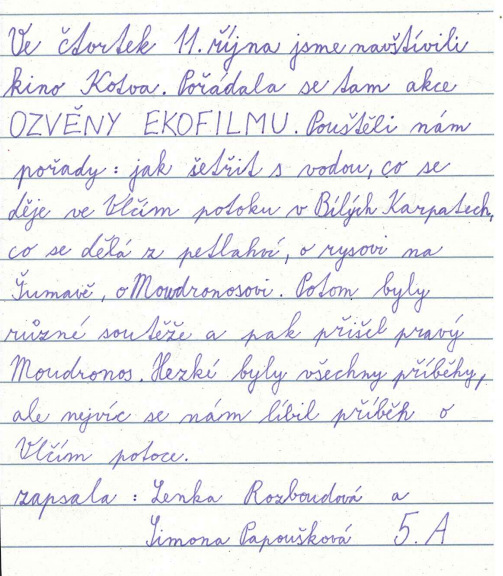 Ve čtvrtek 11. října jsme navštívili
kino Kotva. Pořádala se tam akce
OZVĚNY EKOFILMU. Pouštěli nám
pořady: jak šetřit s vodou, co se
děje ve Vlčím potoku v Bílých Karpatech,
co se dělá z petlahví, o rysovi na
Šumavě, o Moudronosovi. Potom byly
různé soutěže a pak přišel pravý
Moudronos. Hezké byly všechny příběhy,
ale nejvíc se nám líbil příběh o
Vlčím potoce.
zapsala: Lenka Rozboudová a
Simona Papoušková 5. A